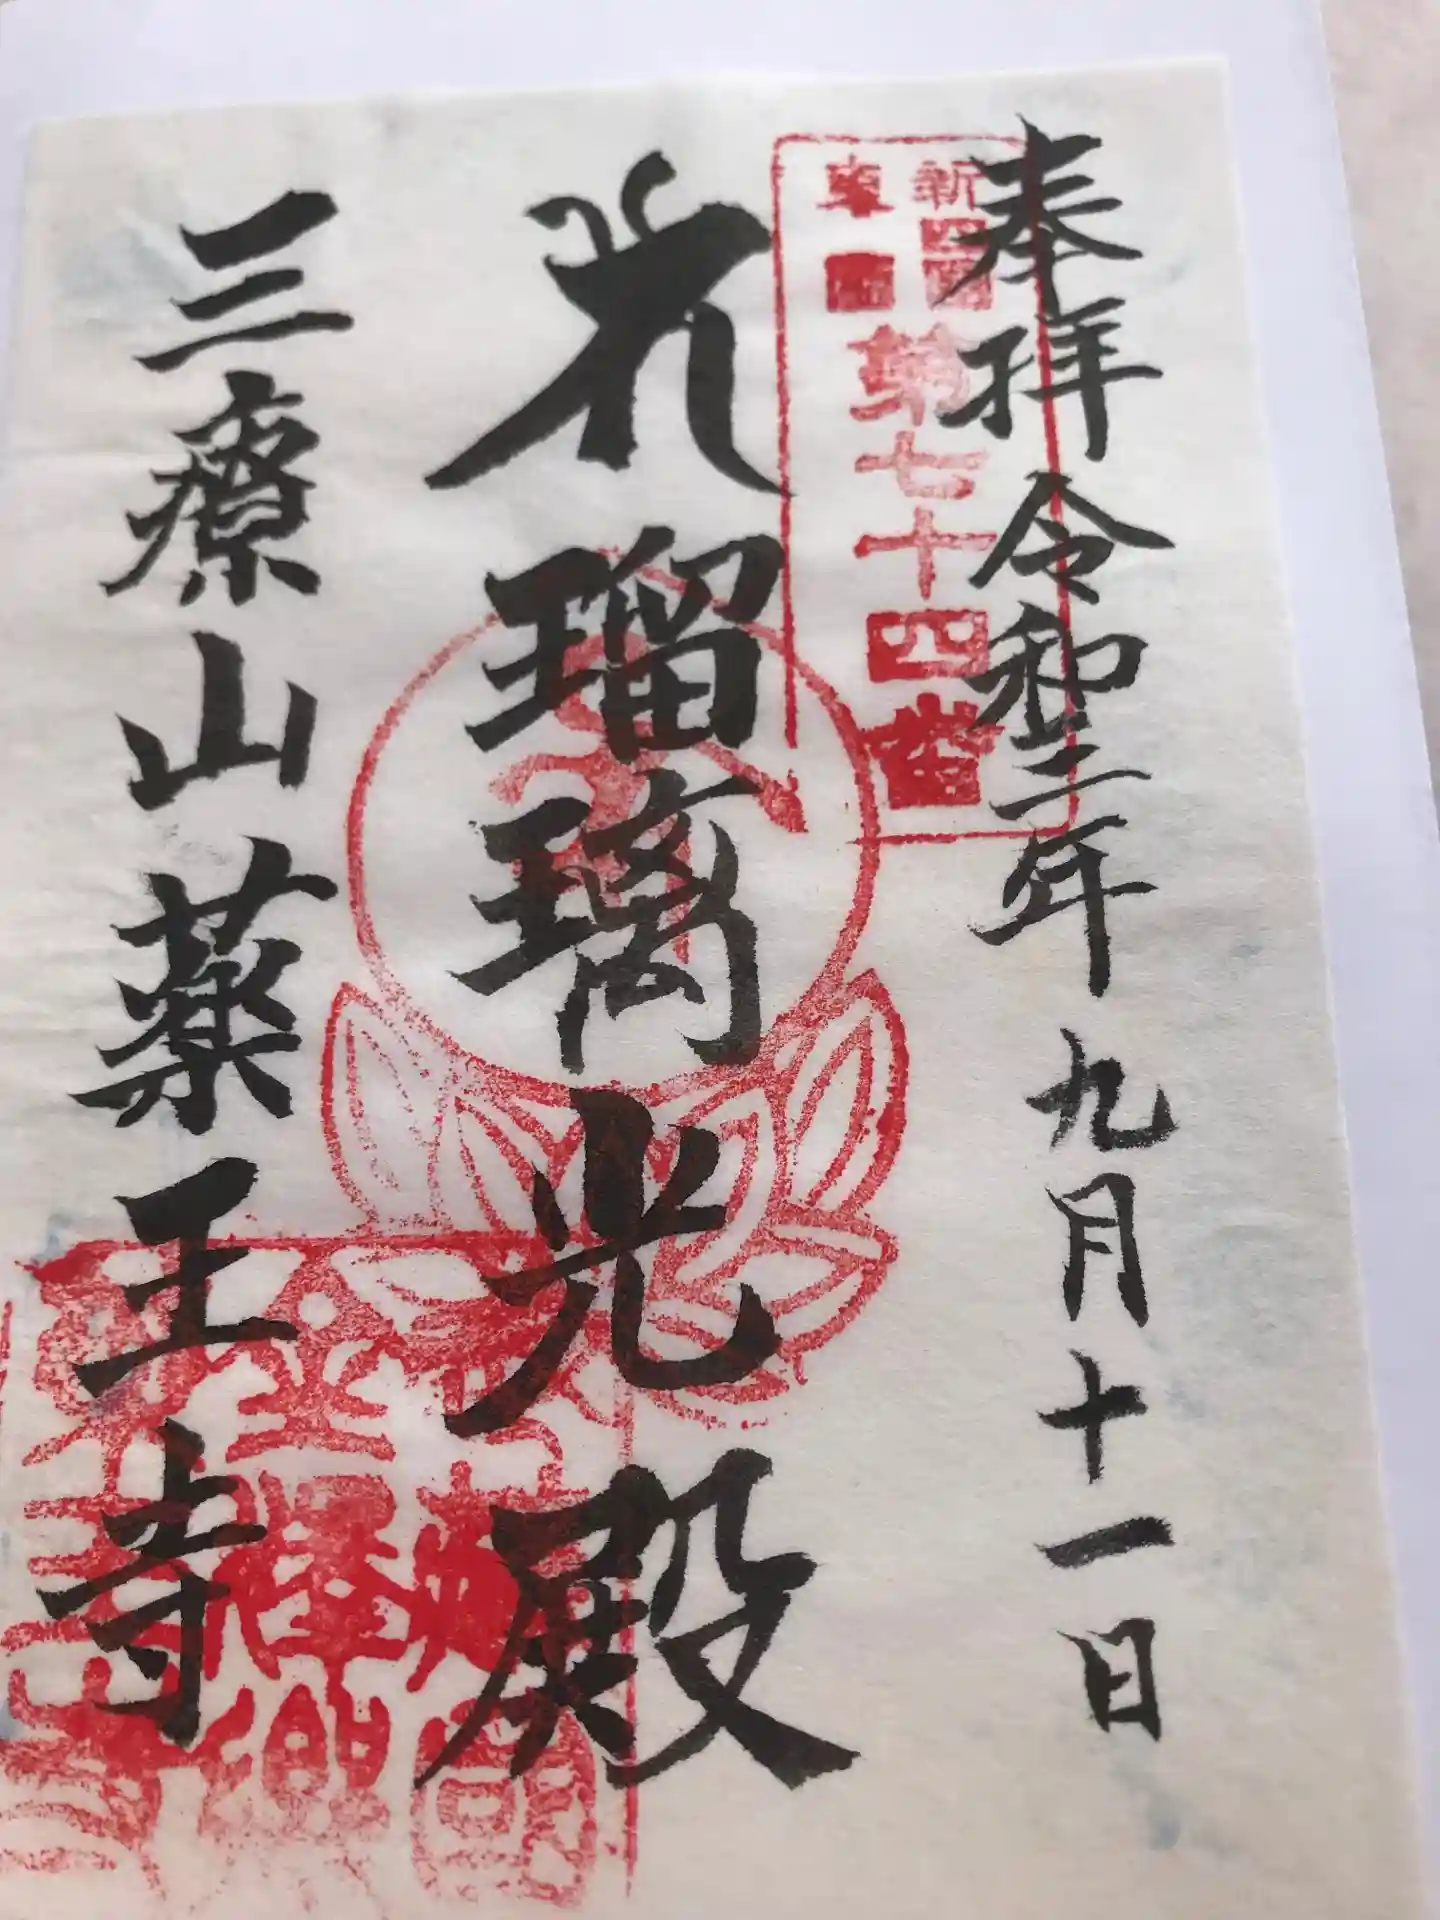 奉拝 令和二年 九月十一日
新四国
東国
第七十四番
瑠璃光殿
三療山薬王寺